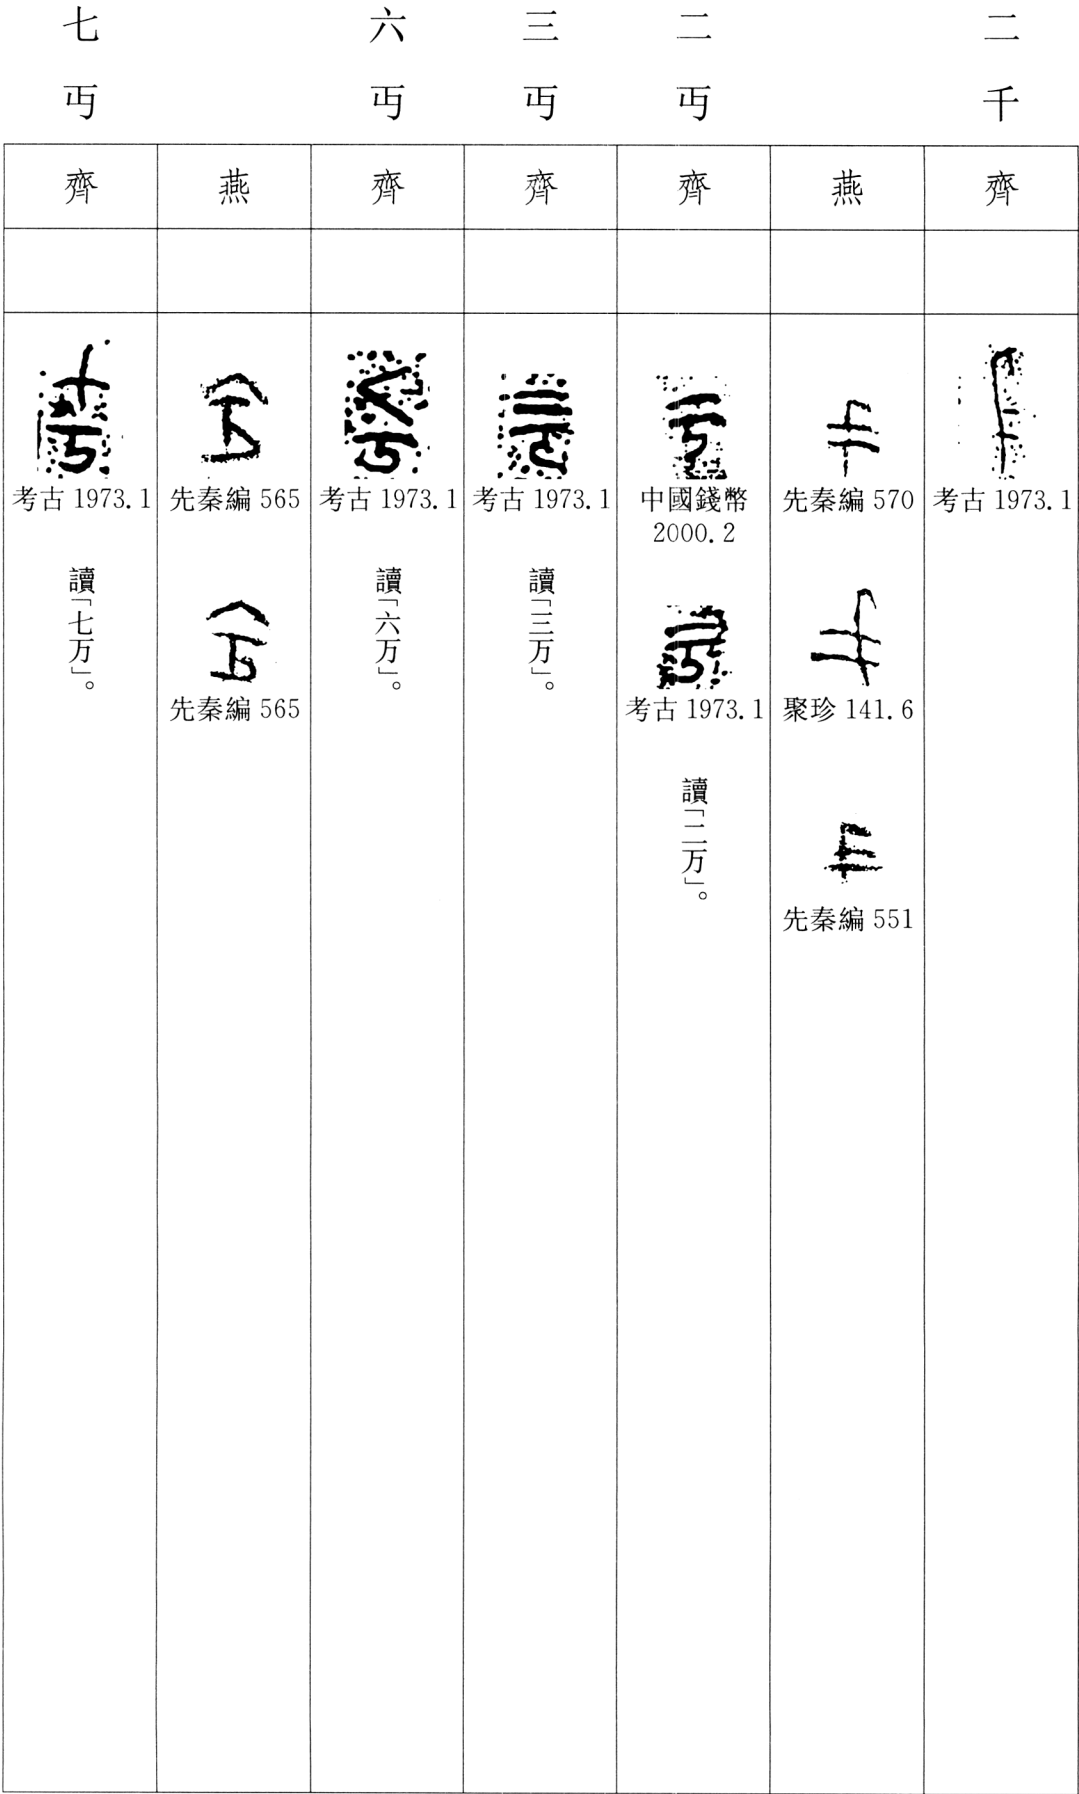 二千
齊
考古 1973.1
燕
先秦編 570
聚珍 141.6
先秦編 551
二丏
齊
中國錢幣
2000.2
考古 1973.1
讀「二万」。
三丏
齊
考古 1973.1
讀「三万」。
六丏
齊
考古 1973.1
讀「六万」。
燕
先秦編 565
先秦編 565
七丏
齊
考古 1973.1
讀「七万」。